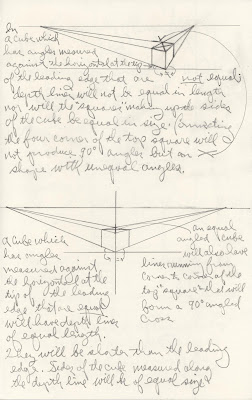 In
a cube which
has angles mesured
against the horizontal at the
of the leading edge that are not equal
depth lines will not be equal in length
nor will the "squares" making up the sides
of the cube be equal in size. Connecting
the four corner of the top square will
not produce 90° angles but an X
shape with unequal angles.
a cube which
has angles
measured against
the horizontal at the
top of the leading
edge that are equal
will have depth lines
of equal length.
an equal
angled cube
will also have
lines running from
corner to corner of the
top "square" that will
form a 90° angled
cross
Lines will be shorter than the leading
edge. Sides of the cube measured along
the depth line will be of equal size